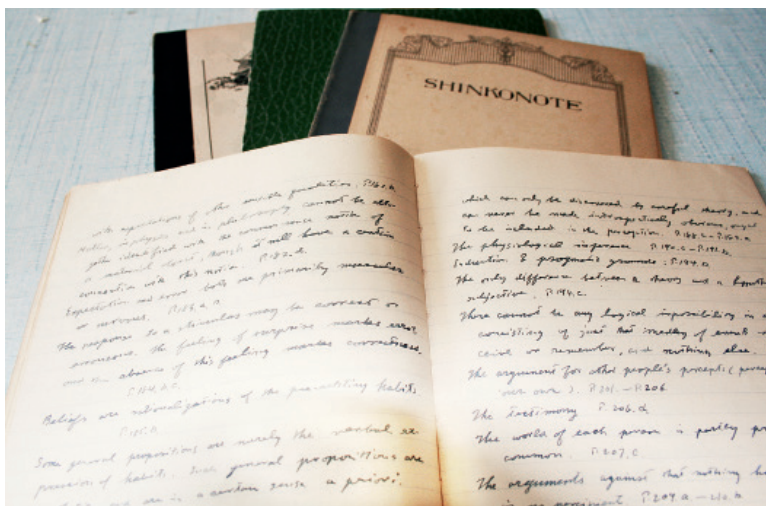 SHINKONOTE
with expectations of other sensible qualities. P.162.b.
Matter, in physics and in philosophy cannot be alto-
gether identified with the common sense notion of
a material object, though it will have a certain
connection with this notion. P.182.d.
Expectation and error both are primarily muscular
or nervous. P.183.a.
The response to a stimulus may be correct or
erroneous. The feeling of surprise marks error,
and the absence of this feeling marks correctness.
P.184.
Beliefs are verbalizations of the preexisting habits.
Some general propositions are merely the verbal ex-
pression of habits. Such general propositions are
are in a certain sense a priori.
which can only be discovered by careful theory, and
can never be made introspectively obvious, ought
to be included in the perception.
The physiological inference
Induction & pragmatic grounds. P.194.
The only difference between a theory and a
subjective. P.194.c.
There cannot be any logical impossibility in a
consisting of just that medley of events
ceive or remember, and nothing else.
The argument for other people's percepts
our own). P.201.-P.206.
The testimony P.206.d.
The world of each person is partly
common. P.207.c.
The arguments against that nothing
is no percipient P.209.a.-210.